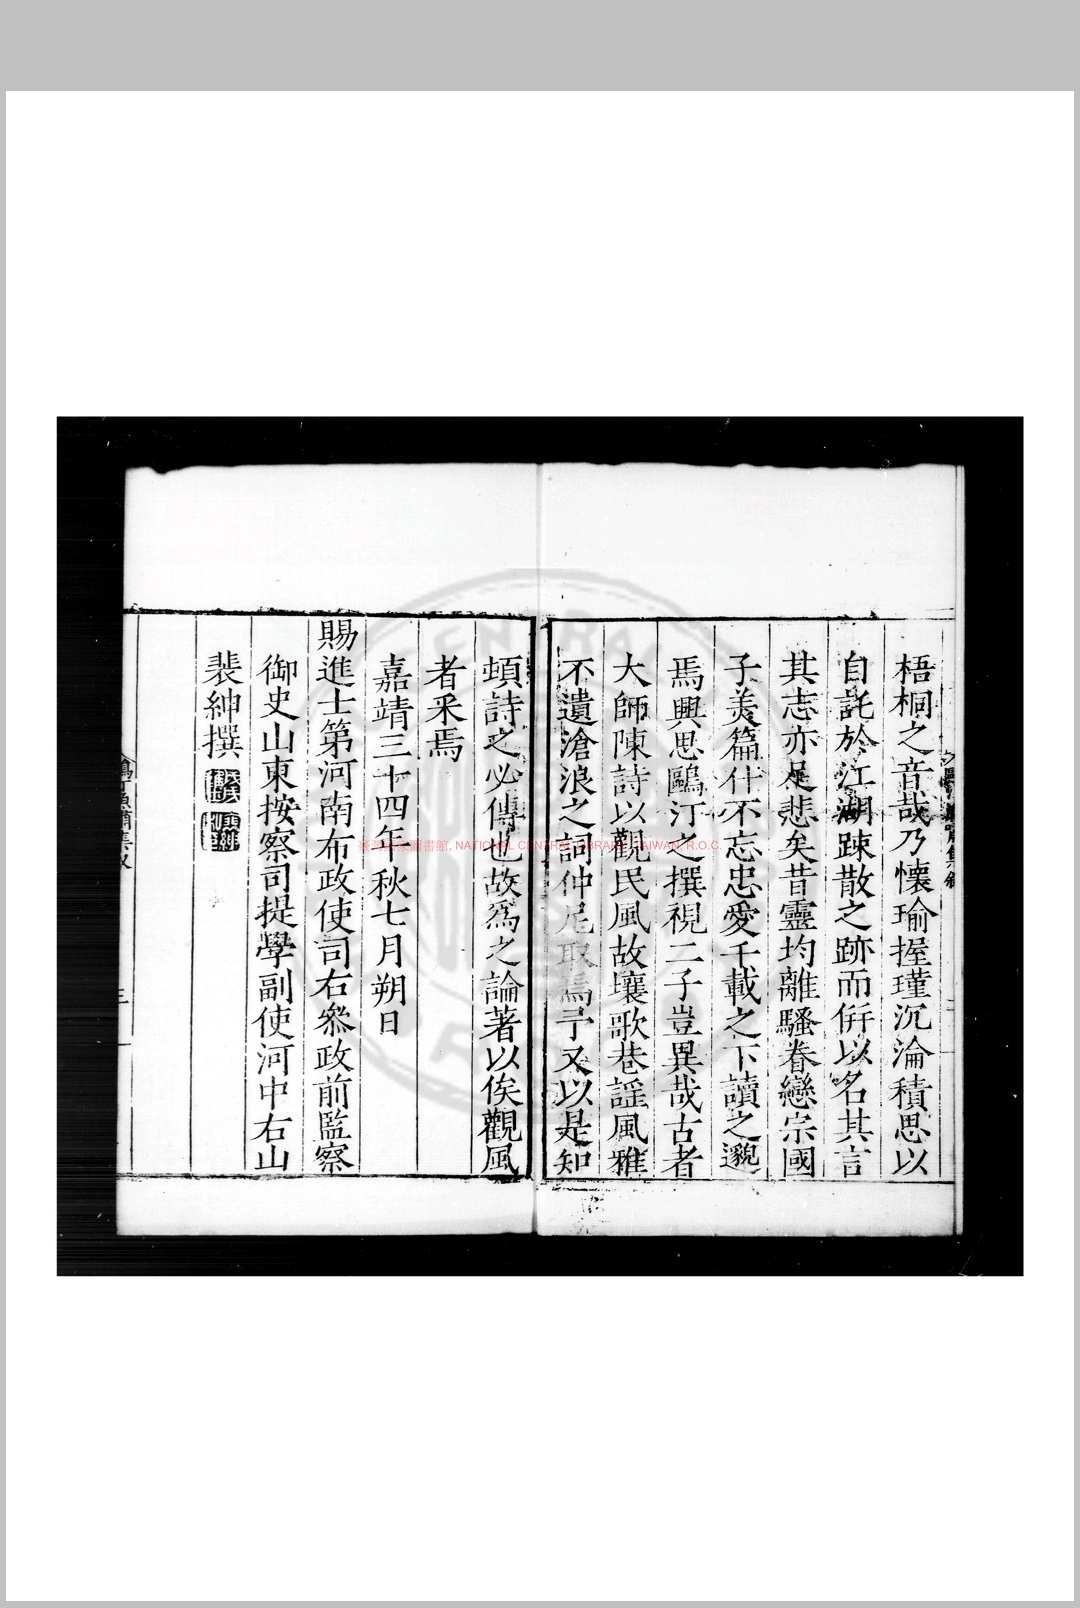 梧桐之音哉乃懷瑜握瑾沉淪積思以
自託於江湖踈散之跡而併以名其言
其志亦足悲矣昔靈均離騷眷戀宗國
子美篇什不忘忠愛千載之下讀之邈
焉興思鷗汀之撰視二子豈異哉古者
大師陳詩以觀民風故壤歌巷謡風雅
不遺滄浪之詞仲尼取焉予又以是知
頓詩之必傳也故爲之論著以俟觀風
者釆焉
嘉靖三十四年秋七月朔日
賜進士第河南布政使司右叅政前監察
御史山東按察司提學副使河中右山
裴紳撰
三
NATIONAL CENTRAL LIBRARY, TAIWAN, R.O.C.